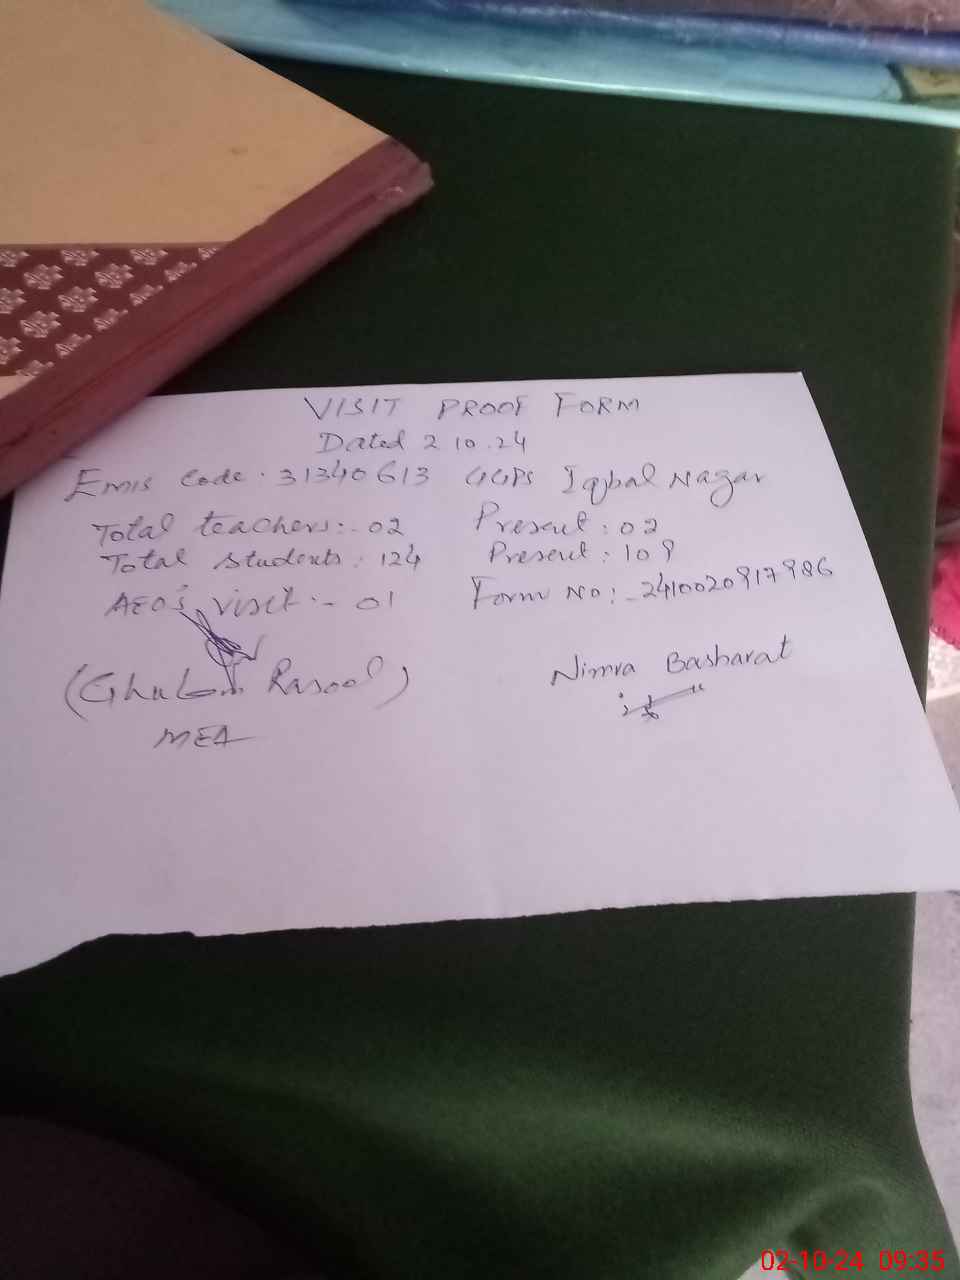 VISIT PROOF FORM
Dated 2.10.24
Emis Code. 31340613 GGPS Iqbal Nagar
Total teachers:- 02 Present: 02
Total students: 124 Present: 109
AEO's visit:- 01 Form No:- 2410020917986
(Ghulam Rasool) Nimra Basharat
MEA
02-10-24 09:35